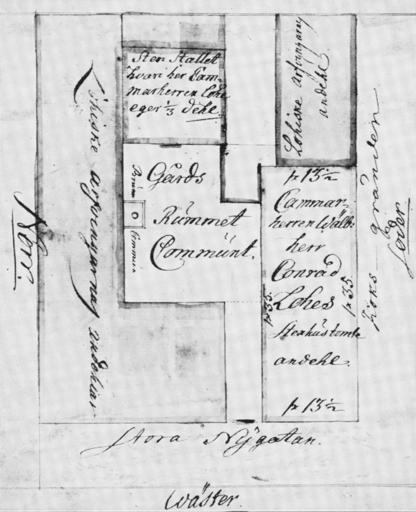 Sten Stallet
hvari her Cam-
marherren Lohe
eger 1/3 dehl
Lohiske arfvingarnas
andehl
Lohiske arfvingarnas andehlar
Norr
Gårds
Rümmet
Commünt.
Brunn
13 1/2
Cammar-
herren Wälb:
herr
Conrad
Lohes
Stenhüstomte
andehl
35
35
13 1/2
Koks gränden
Söder
Stora Nÿgatan.
Wäster.